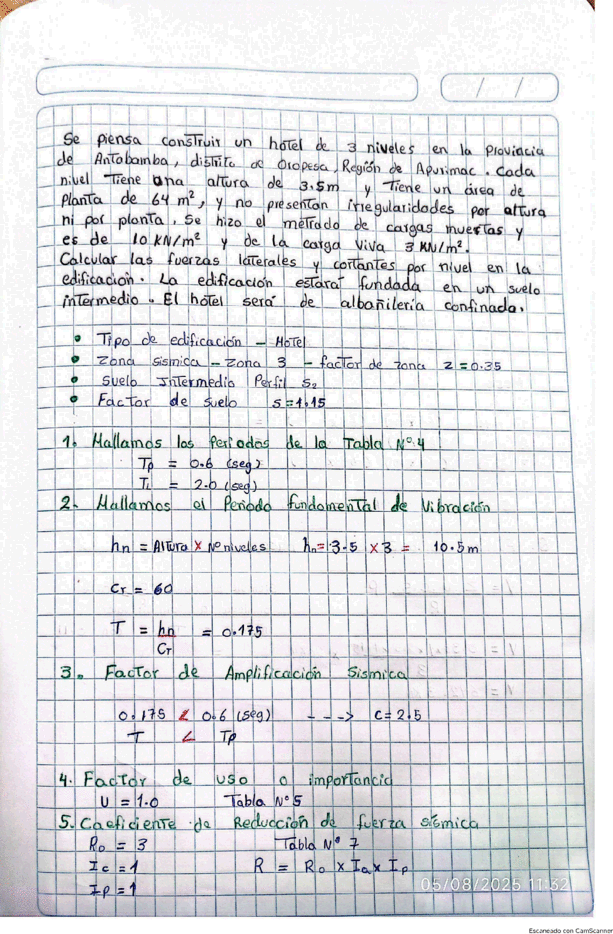 / /
Se piensa construir un hotel de 3 niveles en la Provincia
de Antabamba, distrito de Oropesa, Región de Apurimac. Cada
nivel Tiene una altura de 3.5m y Tiene un área de
Planta de 64 m², y no presentan irregularidades por altura
ni por planta. Se hizo el metrado de cargas muertas y
es de 10 KN/m² y de la carga viva 3 KN/m².
Calcular las fuerzas laterales y cortantes por nivel en la
edificación. La edificación estará fundada en un suelo
intermedio. El hotel será de albañilería confinada.
• Tipo de edificación – Hotel
• Zona sísmica – Zona 3 – factor de zona Z = 0.35
• Suelo Intermedio Perfil S₂
• Factor de suelo S = 1.15
1. Hallamos los Periodos de la Tabla N°4
Tp = 0.6 (seg)
TL = 2.0 (seg)
2. Hallamos el Periodo fundamental de Vibración
hn = Altura x N° niveles hn = 3.5 x 3 = 10.5m
Cr = 60
T = hn/Cr = 0.175
3. Factor de Amplificación Sismica
0.175 < 0.6 (seg) ---> C = 2.5
T < Tp
4. Factor de uso o importancia
U = 1.0 Tabla N°5
5. Coeficiente de Reducción de fuerza sísmica
Ro = 3 Tabla N° 7
Ic = 1 R = Ro x Ia x Ip
Ip = 1
05/08/2025 11:32
Escaneado con CamScanner